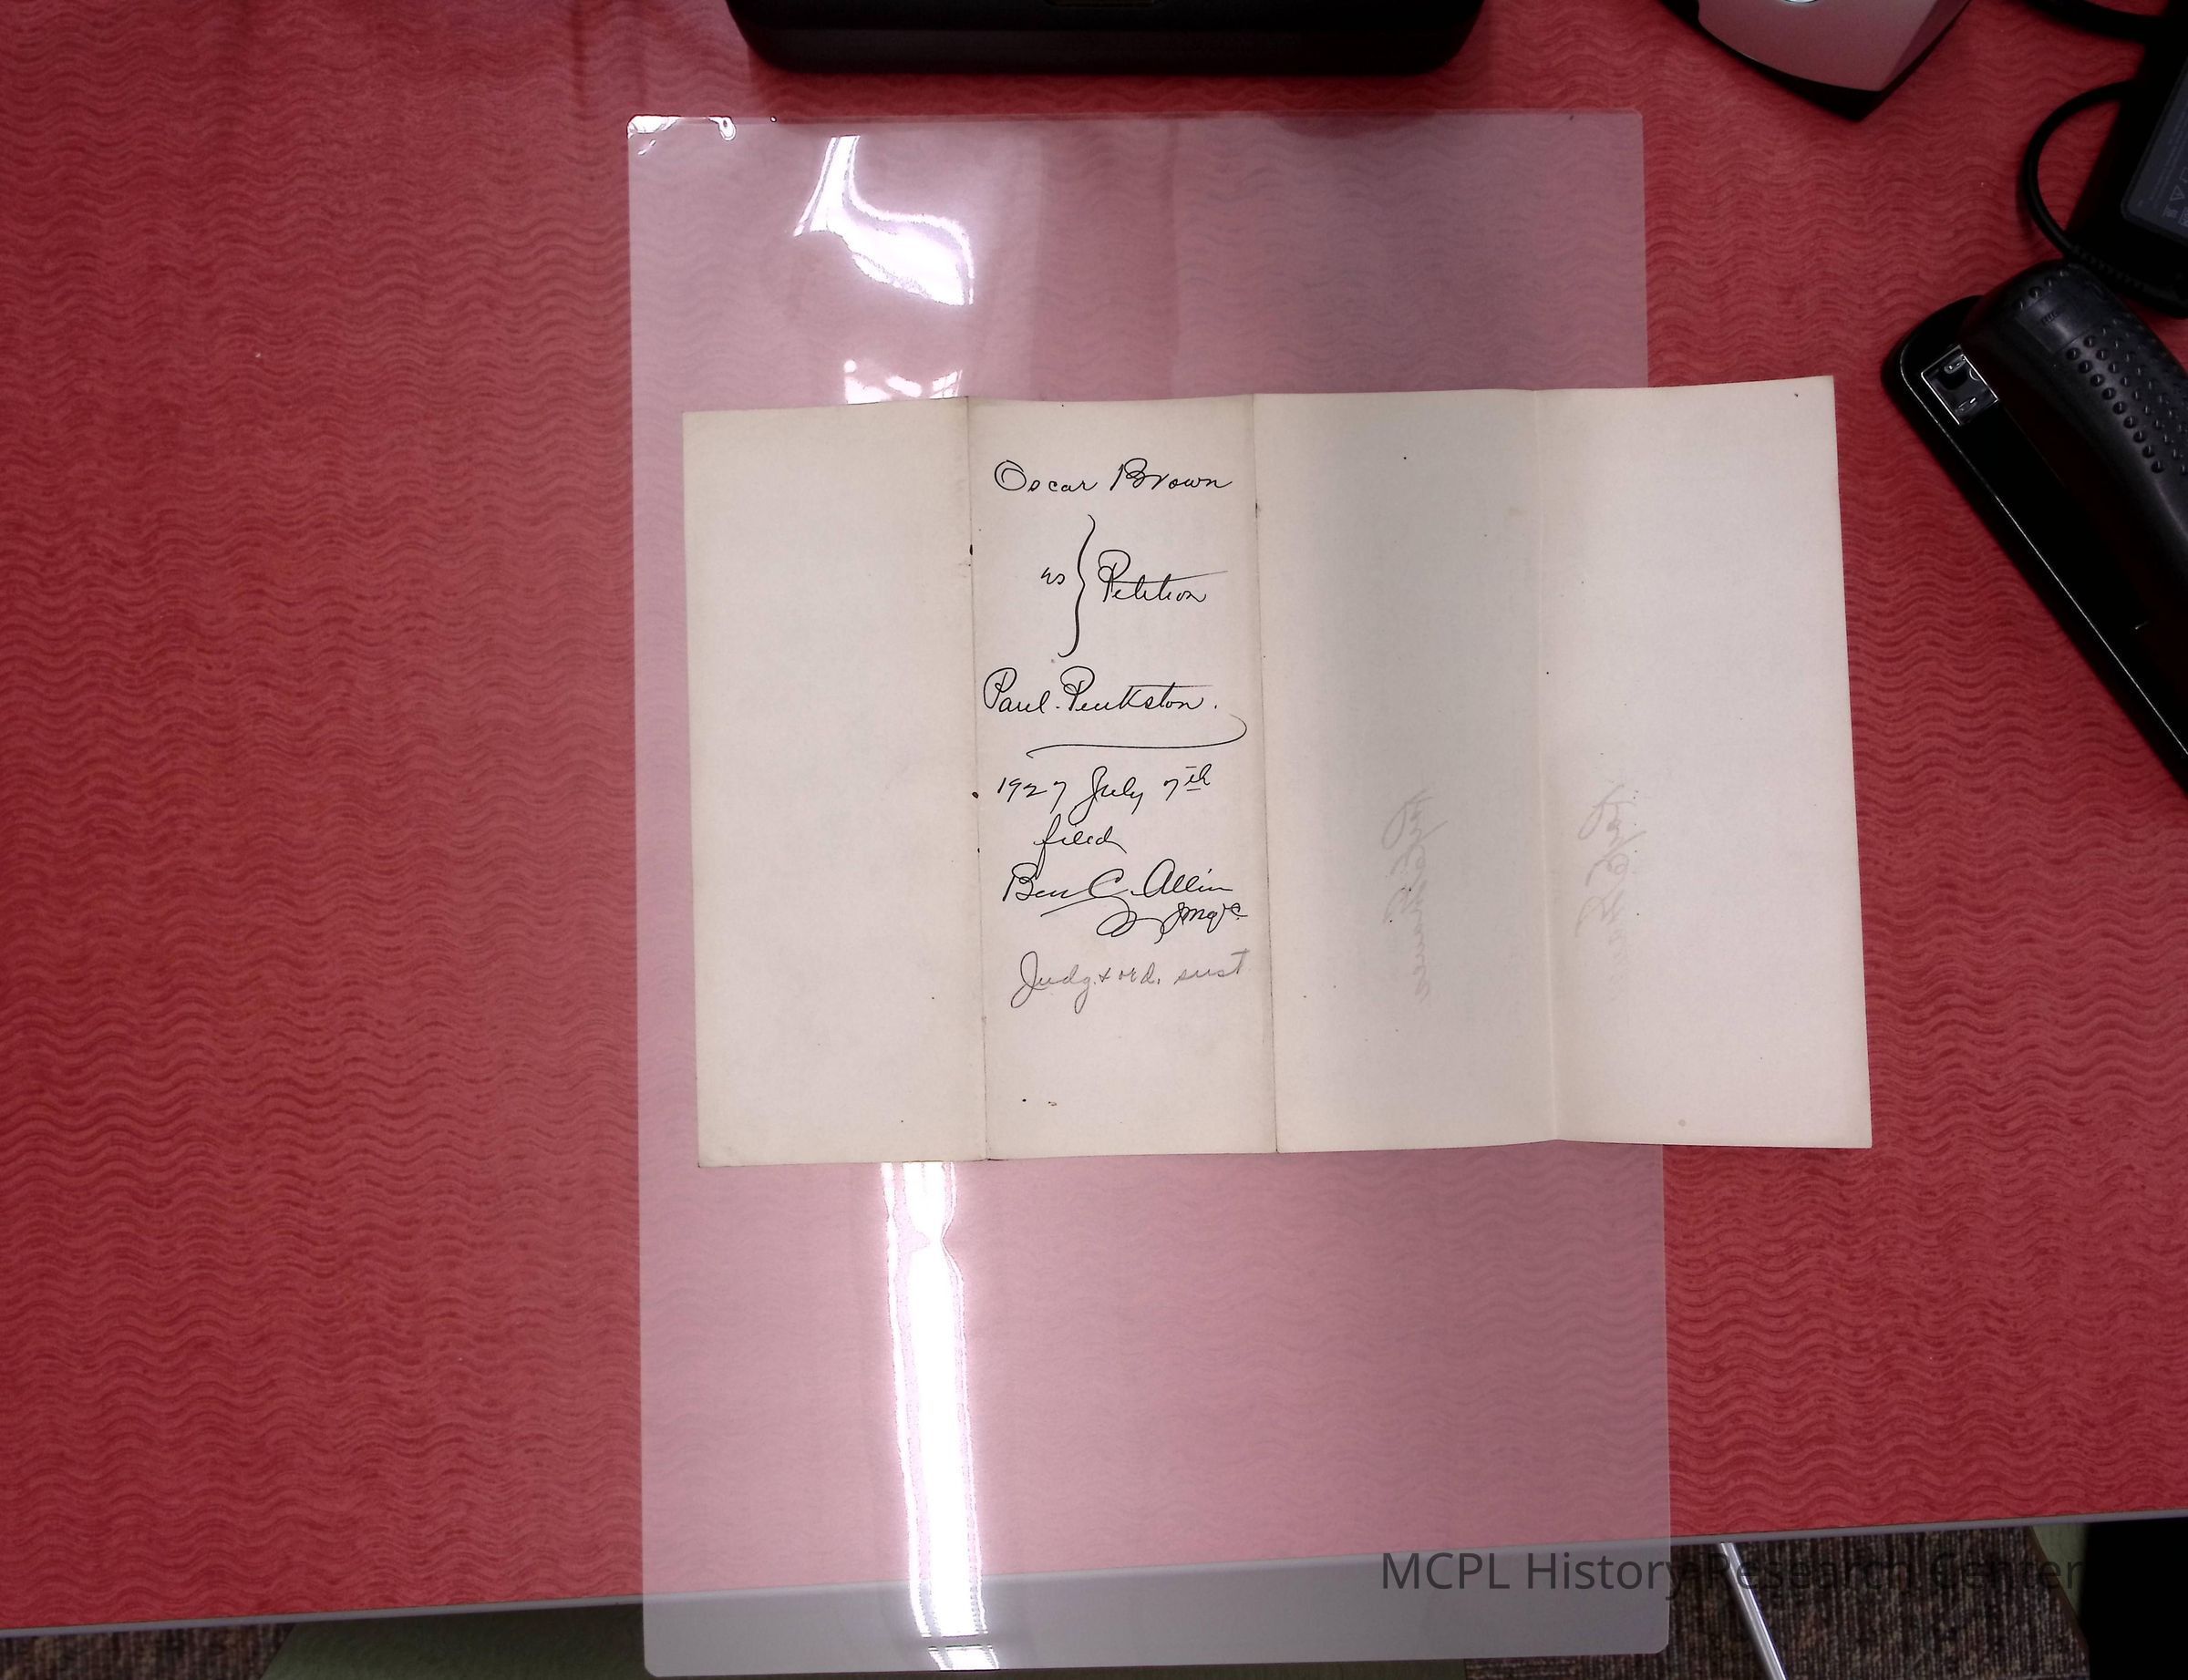 Oscar Brown
vs } Petition
Paul Penkston.
1927 July 7th
filed
Ben C. Allin
Judg. & ord. sust
MCPL History Research Center